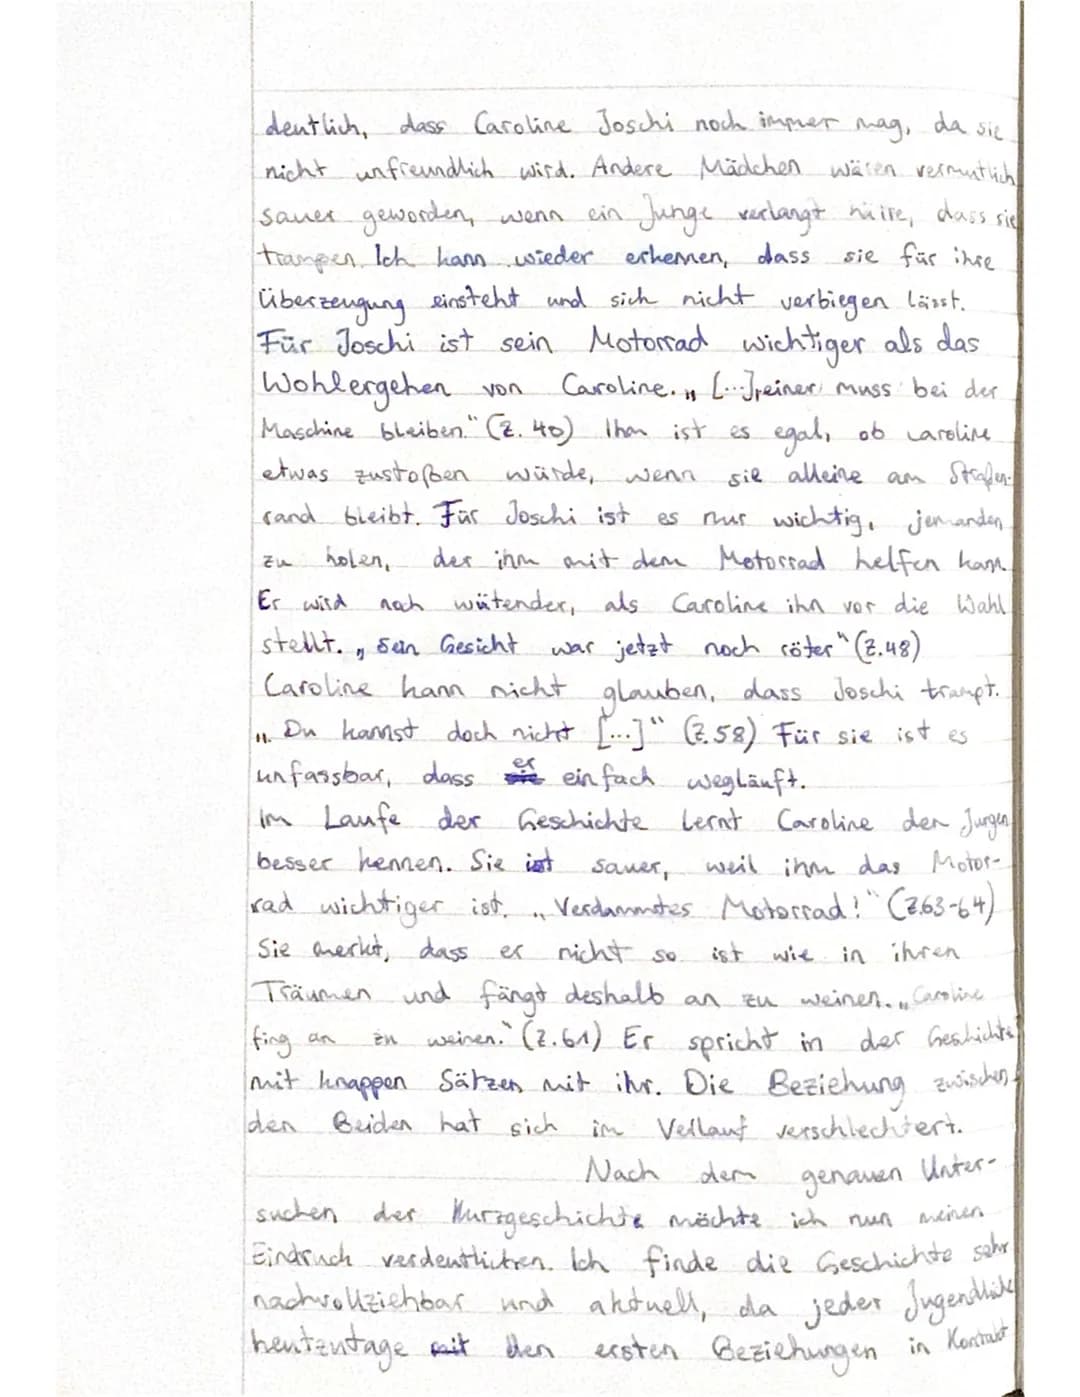 deutlich, dass Caroline Joschi noch immer mag, da sie
nicht unfreundlich wird. Andere Mädchen wären vermutlich
sauer geworden, wenn ein Junge verlangt hätte, dass sie
trampen. Ich kann wieder erkennen, dass sie für ihre
Überzeugung einsteht und sich nicht verbiegen lässt.
Für Joschi ist sein Motorrad wichtiger als das
Wohlergehen von Caroline. „[...], einer muss bei der
Maschine bleiben." (Z. 40) Ihm ist es egal, ob Caroline
etwas zustoßen würde, wenn sie alleine am Straßen-
rand bleibt. Für Joschi ist es nur wichtig, jemanden
zu holen, der ihm mit dem Motorrad helfen kann.
Er wird noch wütender, als Caroline ihn vor die Wahl
stellt. „Sein Gesicht war jetzt noch röter" (Z.48)
Caroline kann nicht glauben, dass Joschi trampt.
„Du kannst doch nicht [...]" (Z.58) Für sie ist es
unfassbar, dass er einfach wegläuft.
Im Laufe der Geschichte lernt Caroline den Jungen
besser kennen. Sie ist sauer, weil ihm das Motor-
rad wichtiger ist. „Verdammtes Motorrad!" (Z.63-64)
Sie merkt, dass er nicht so ist wie in ihren
Träumen und fängt deshalb an zu weinen. „Caroline
fing an zu weinen." (Z.61) Er spricht in der Geschichte
mit knappen Sätzen mit ihr. Die Beziehung zwischen
den Beiden hat sich im Verlauf verschlechtert.
Nach dem genauen Unter-
suchen der Kurzgeschichte möchte ich nun meinen
Eindruck verdeutlichen. Ich finde die Geschichte sehr
nachvollziehbar und aktuell, da jeder Jugendliche
heutzutage mit den ersten Beziehungen in Kontakt